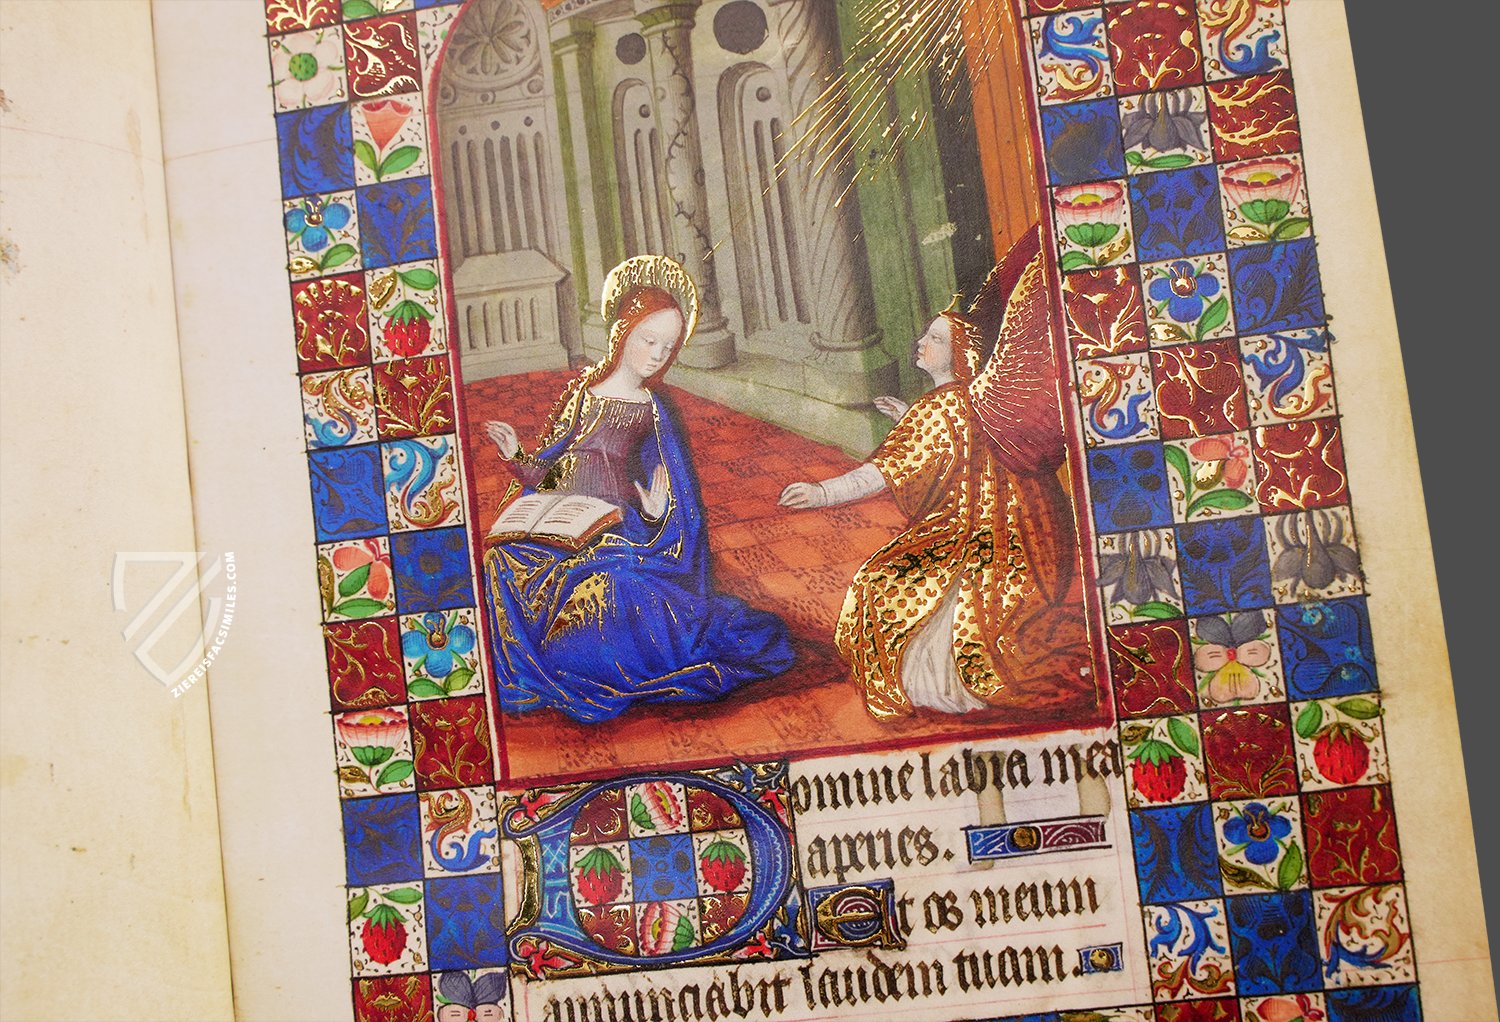 Domine labia mea
aperies.
Et os meum
annunciabit laudem tuam.
ZIEREISFACSIMILES.COM